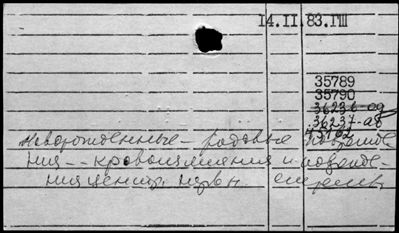 14.II.83.ГШ
35789
35790
36236-ад
36237-ад
43762
Новорожденные - родовые поврежде
ния - кровоизлияния и поврежде-
ния центр. нервн. системы